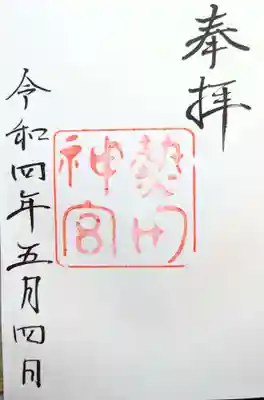 奉拝
熱田
神宮
令和四年五月四日